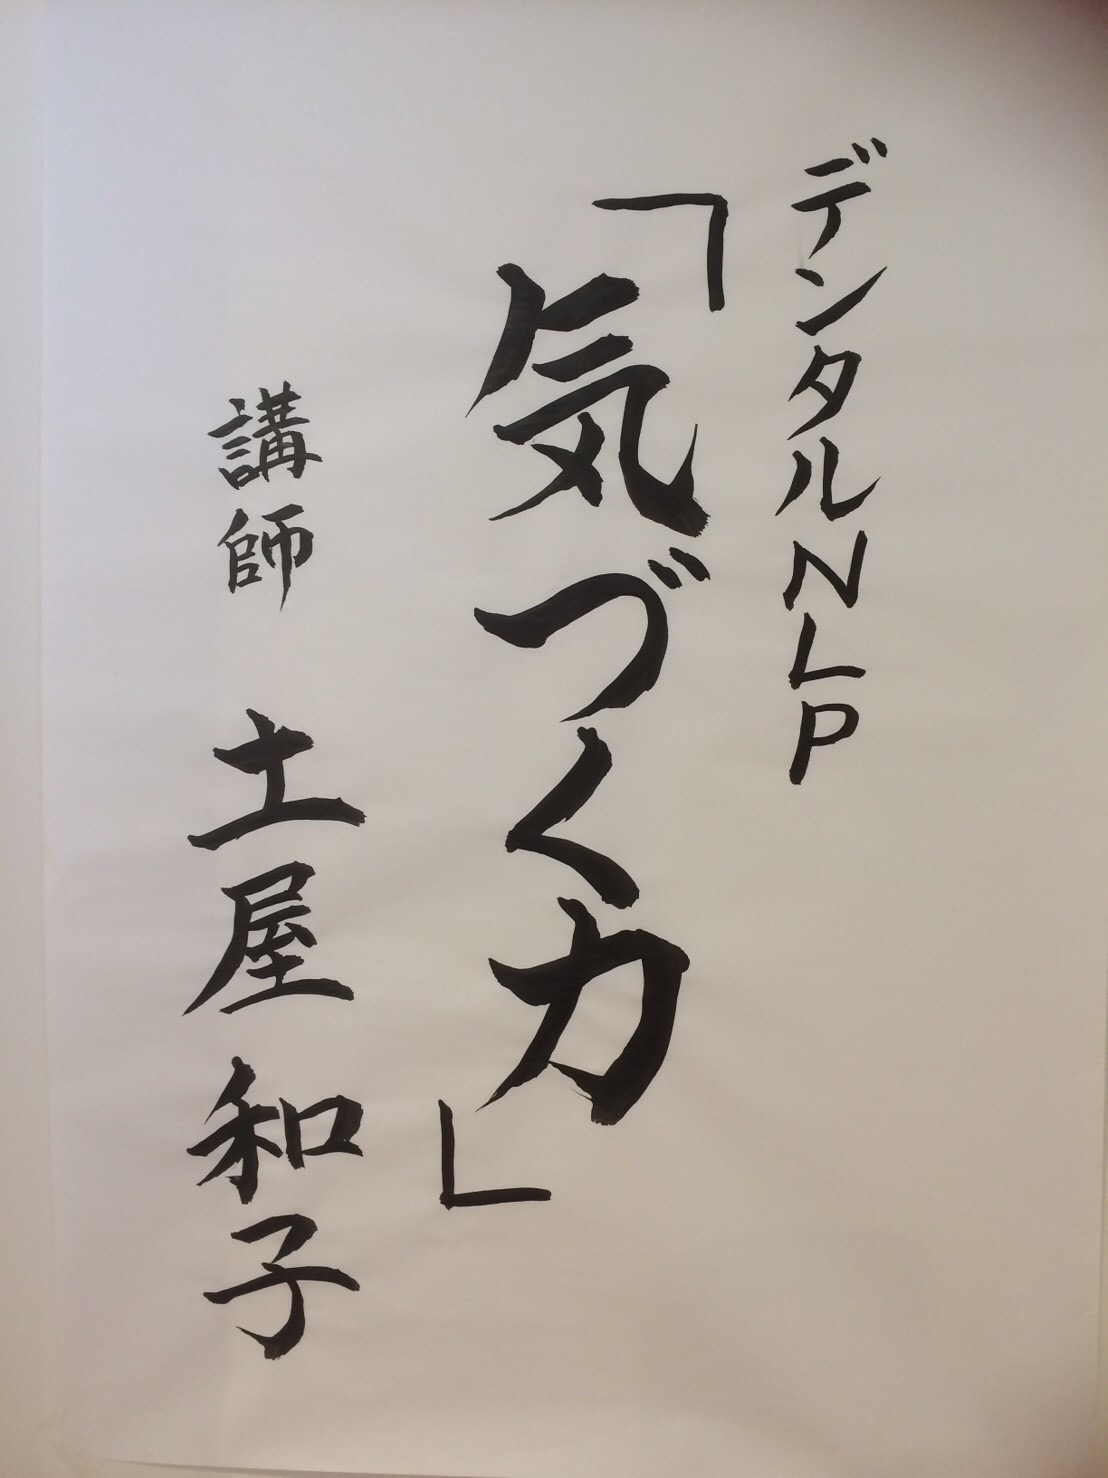 デンタルNLP
「気づく力」
講師 土屋和子